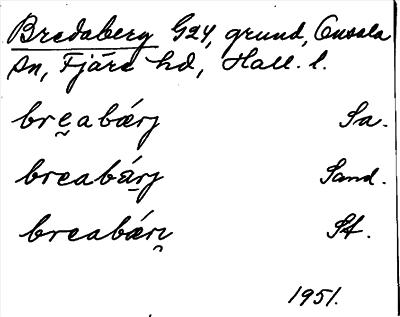 Bredaberg G24, grund, Onsala
sn, Fjäre hd, Hall. l.
bre̯abærj Sa.
breabárj Sand.
breabǽrı̯ St.
1951.